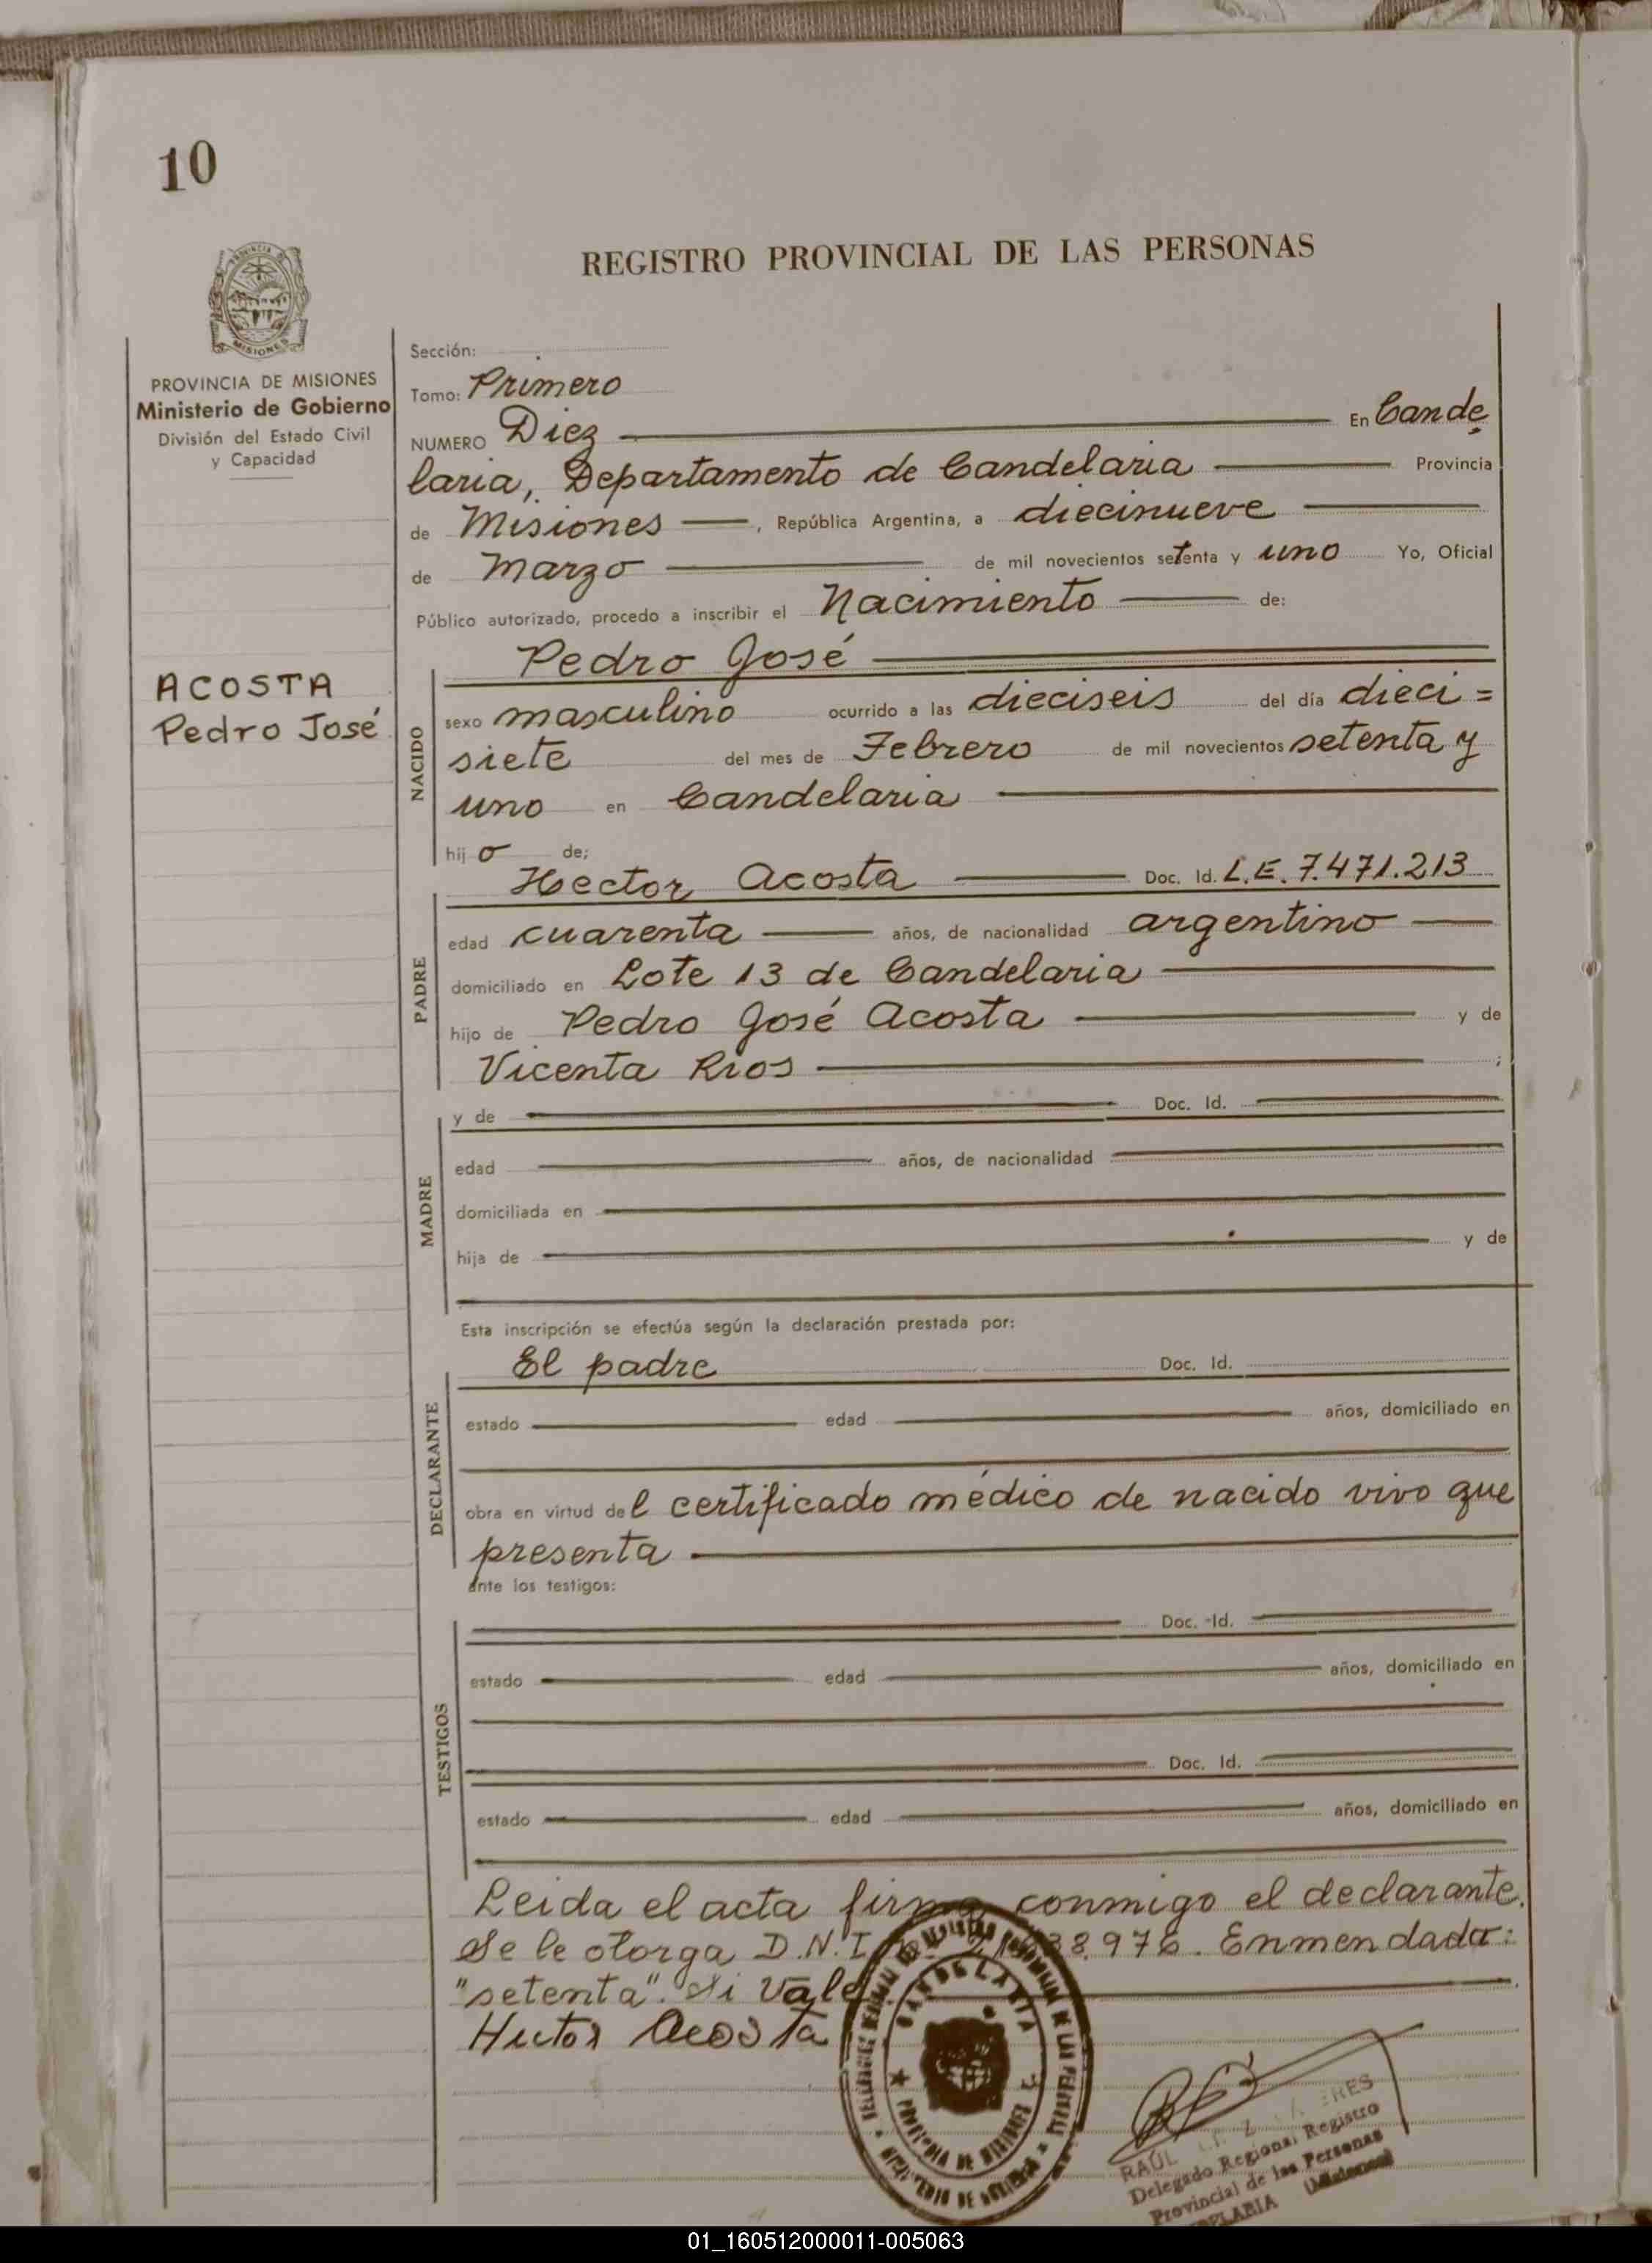 10
REGISTRO PROVINCIAL DE LAS PERSONAS
MISIONES
PROVINCIA DE MISIONES
Ministerio de Gobierno
División del Estado Civil
y Capacidad
ACOSTA
Pedro José
Sección:
Tomo: Primero
NUMERO Diez En Cande
laria, Departamento de Candelaria Provincia
de Misiones, República Argentina, a diecinueve
de Marzo de mil novecientos setenta y uno Yo, Oficial
Público autorizado, procedo a inscribir el Nacimiento de:
NACIDO
Pedro José
sexo masculino ocurrido a las dieciseis del día dieci=
siete del mes de Febrero de mil novecientos setenta y
uno en Candelaria
hijo de;
PADRE
Hector Acosta Doc. Id. L.E. 7.471.213
edad cuarenta años, de nacionalidad argentino
domiciliado en Lote 13 de Candelaria
hijo de Pedro José Acosta y de
Vicenta Rios ;
MADRE
y de Doc. Id.
edad años, de nacionalidad
domiciliada en
hija de y de
Esta inscripción se efectúa según la declaración prestada por:
DECLARANTE
El padre Doc. Id.
estado edad años, domiciliado en
obra en virtud del certificado médico de nacido vivo que
presenta
ante los testigos:
TESTIGOS
Doc. Id.
estado edad años, domiciliado en
Doc. Id.
estado edad años, domiciliado en
Leida el acta firma conmigo el declarante.
Se le otorga D.N.I. 38.976. Enmendada:
"setenta". Si Vale
Hector Acosta
CANDELARIA
PROVINCIA DE MISIONES
RAÚL
Delegado Regional Registro
Provincial de las Personas
CANDELARIA (Misiones)
01_160512000011-005063